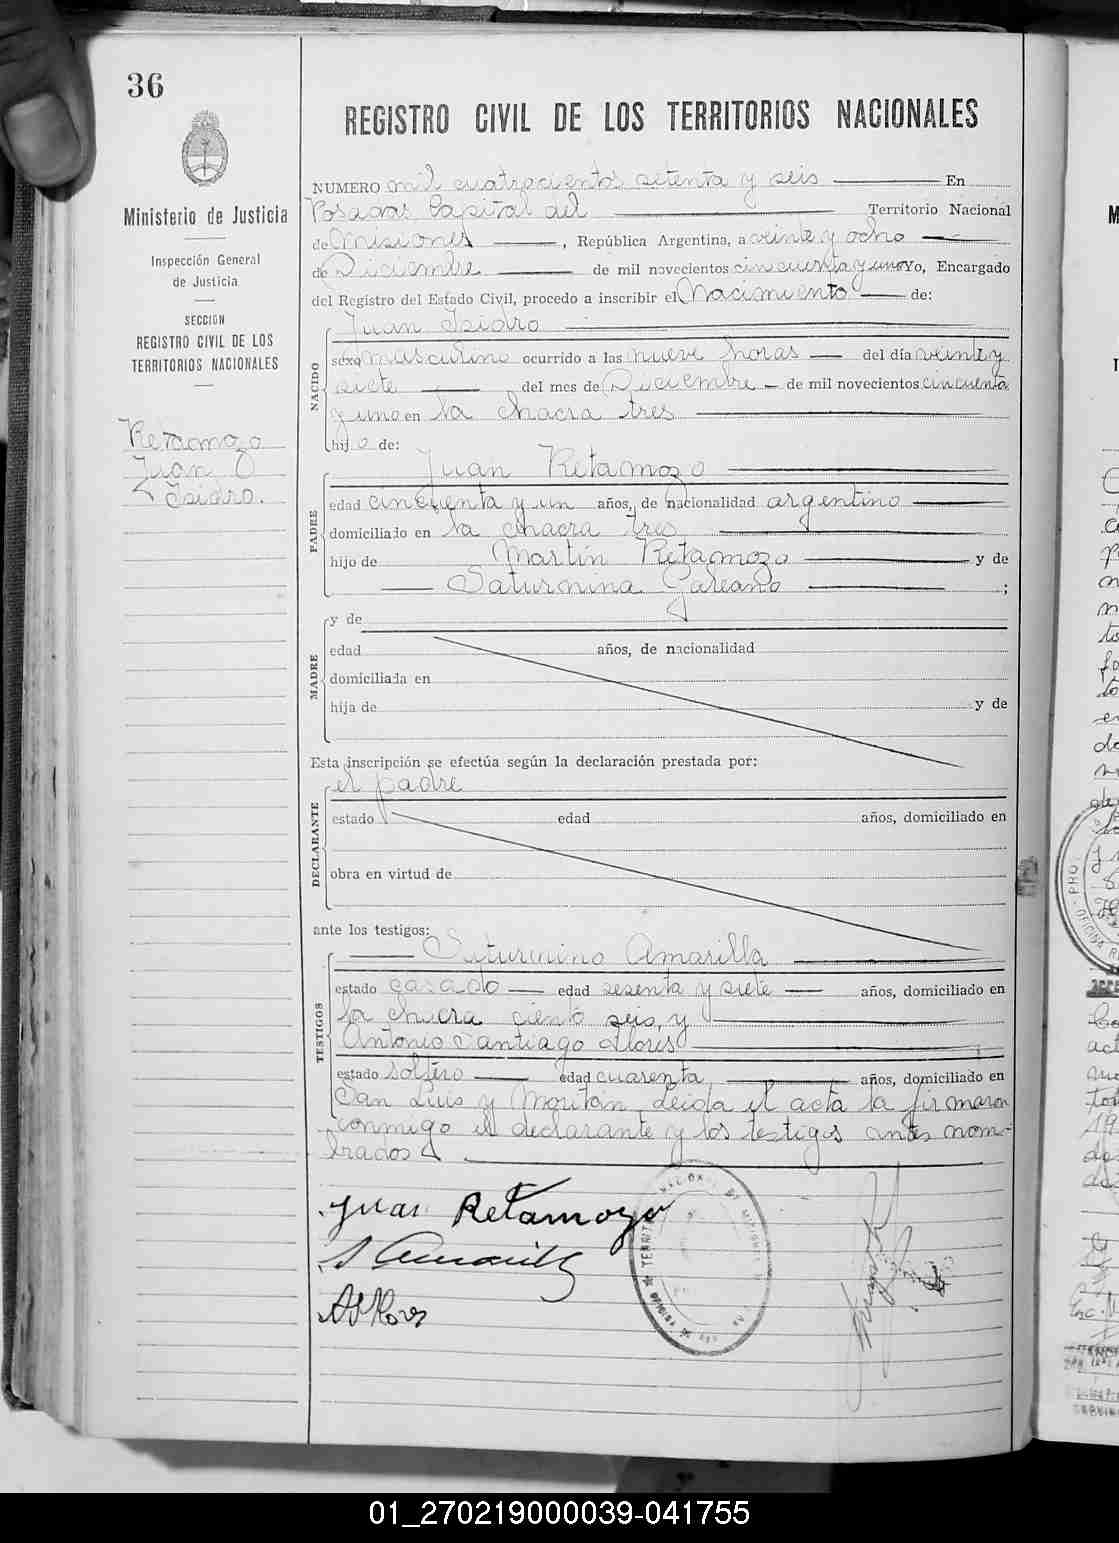 36
Ministerio de Justicia
Inspección General
de Justicia
SECCION
REGISTRO CIVIL DE LOS
TERRITORIOS NACIONALES
Retamozo
Juan
Isidro.
REGISTRO CIVIL DE LOS TERRITORIOS NACIONALES
NUMERO mil cuatrocientos setenta y seis En
Posadas Capital del Territorio Nacional
de Misiones, República Argentina, a veinte y ocho
de Diciembre de mil novecientos cincuenta y uno Yo, Encargado
del Registro del Estado Civil, procedo a inscribir el Nacimiento de:
NACIDO
Juan Isidro
sexo masculino ocurrido a las nueve horas del día veinte y
siete del mes de Diciembre de mil novecientos cincuenta
y uno en la chacra tres
hijo de:
PADRE
Juan Retamozo
edad cincuenta y un años, de nacionalidad argentino
domiciliado en la chacra tres
hijo de Martín Retamozo y de
Saturnina ;
MADRE
y de
edad años, de nacionalidad
domiciliada en
hija de y de
Esta inscripción se efectúa según la declaración prestada por:
DECLARANTE
el padre
estado edad años, domiciliado en
obra en virtud de
ante los testigos:
TESTIGOS
Saturnino Amarilla
estado casado edad sesenta y siete años, domiciliado en
la chacra ciento seis, y
Antonio Santiago Flores
estado soltero edad cuarenta años, domiciliado en
San Luis y Moritán. Leída el acta la firmaron
conmigo el declarante y los testigos antes nom-
brados
Juan Retamozo
S Amarilla
ASFlores
01_270219000039-041755